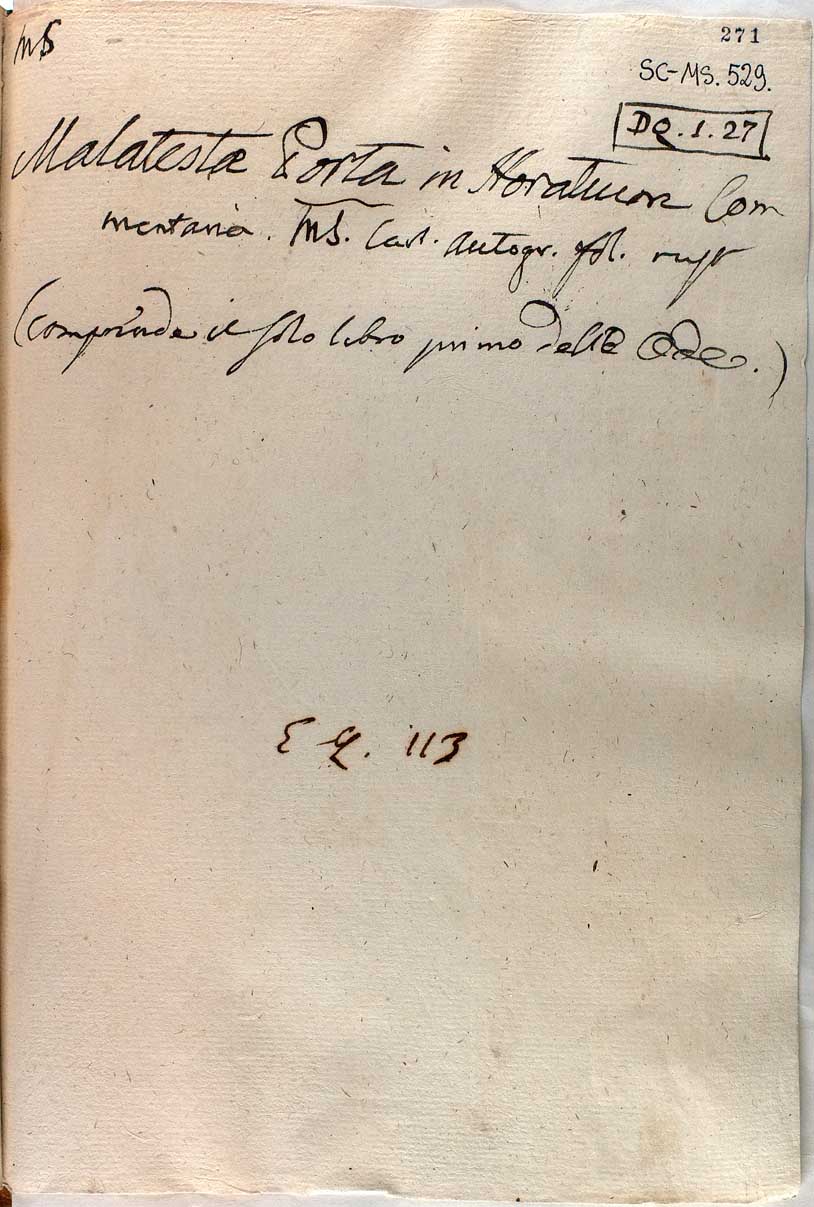 MS
271
SC-MS. 529.
DQ. 1. 27
Malatestæ Porta in Horatium Com
mentaria. MS. Cart. Autogr. fol.
(comprende il solo libro primo delle Ode.)
E q. 113